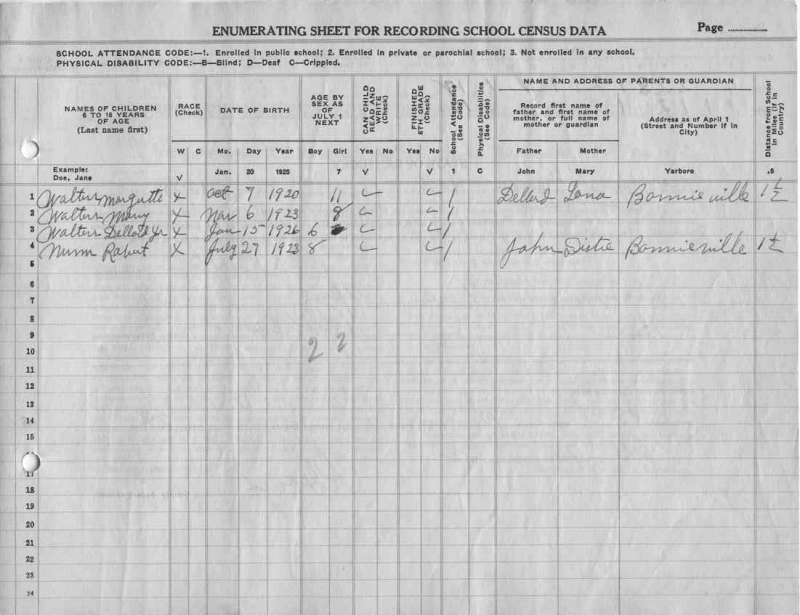 ENUMERATING SHEET FOR RECORDING SCHOOL CENSUS DATA
Page
SCHOOL ATTENDANCE CODE:—1. Enrolled in public school; 2. Enrolled in private or parochial school; 3. Not enrolled in any school.
PHYSICAL DISABILITY CODE:—B—Blind; D—Deaf C—Crippled.
NAMES OF CHILDREN
6 TO 18 YEARS
OF AGE
(Last name first)
RACE
(Check)
DATE OF BIRTH
AGE BY
SEX AS
OF
JULY 1
NEXT
CAN CHILD
READ AND
WRITE
(Check)
FINISHED
8TH GRADE
(Check)
School Attendance
(See Code)
Physical Disabilities
(See Code)
NAME AND ADDRESS OF PARENTS OR GUARDIAN
Record first name of
father and first name of
mother, or full name of
mother or guardian
Address as of April 1
(Street and Number if in
City)
Distance from School
in Miles (if in
Country)
W C Mo. Day Year Boy Girl Yes No Yes No Father Mother
Example:
Doe, Jane V Jan. 20 1925 7 V V 1 C John Mary Yarboro .5
1 Walters X Oct 7 1920 11 1 Dellard Lona Bonnieville 1 1/2
2 Walters Mary X Mar 6 1923 8 1
3 Walters Jr X Jan 15 1926 6 1
4 Nunn Robert X July 27 1923 8 1 John Distie Bonnieville 1 1/2
5
6
7
8
9
10 2 2
11
12
13
14
15
17
18
19
20
21
22
23
24